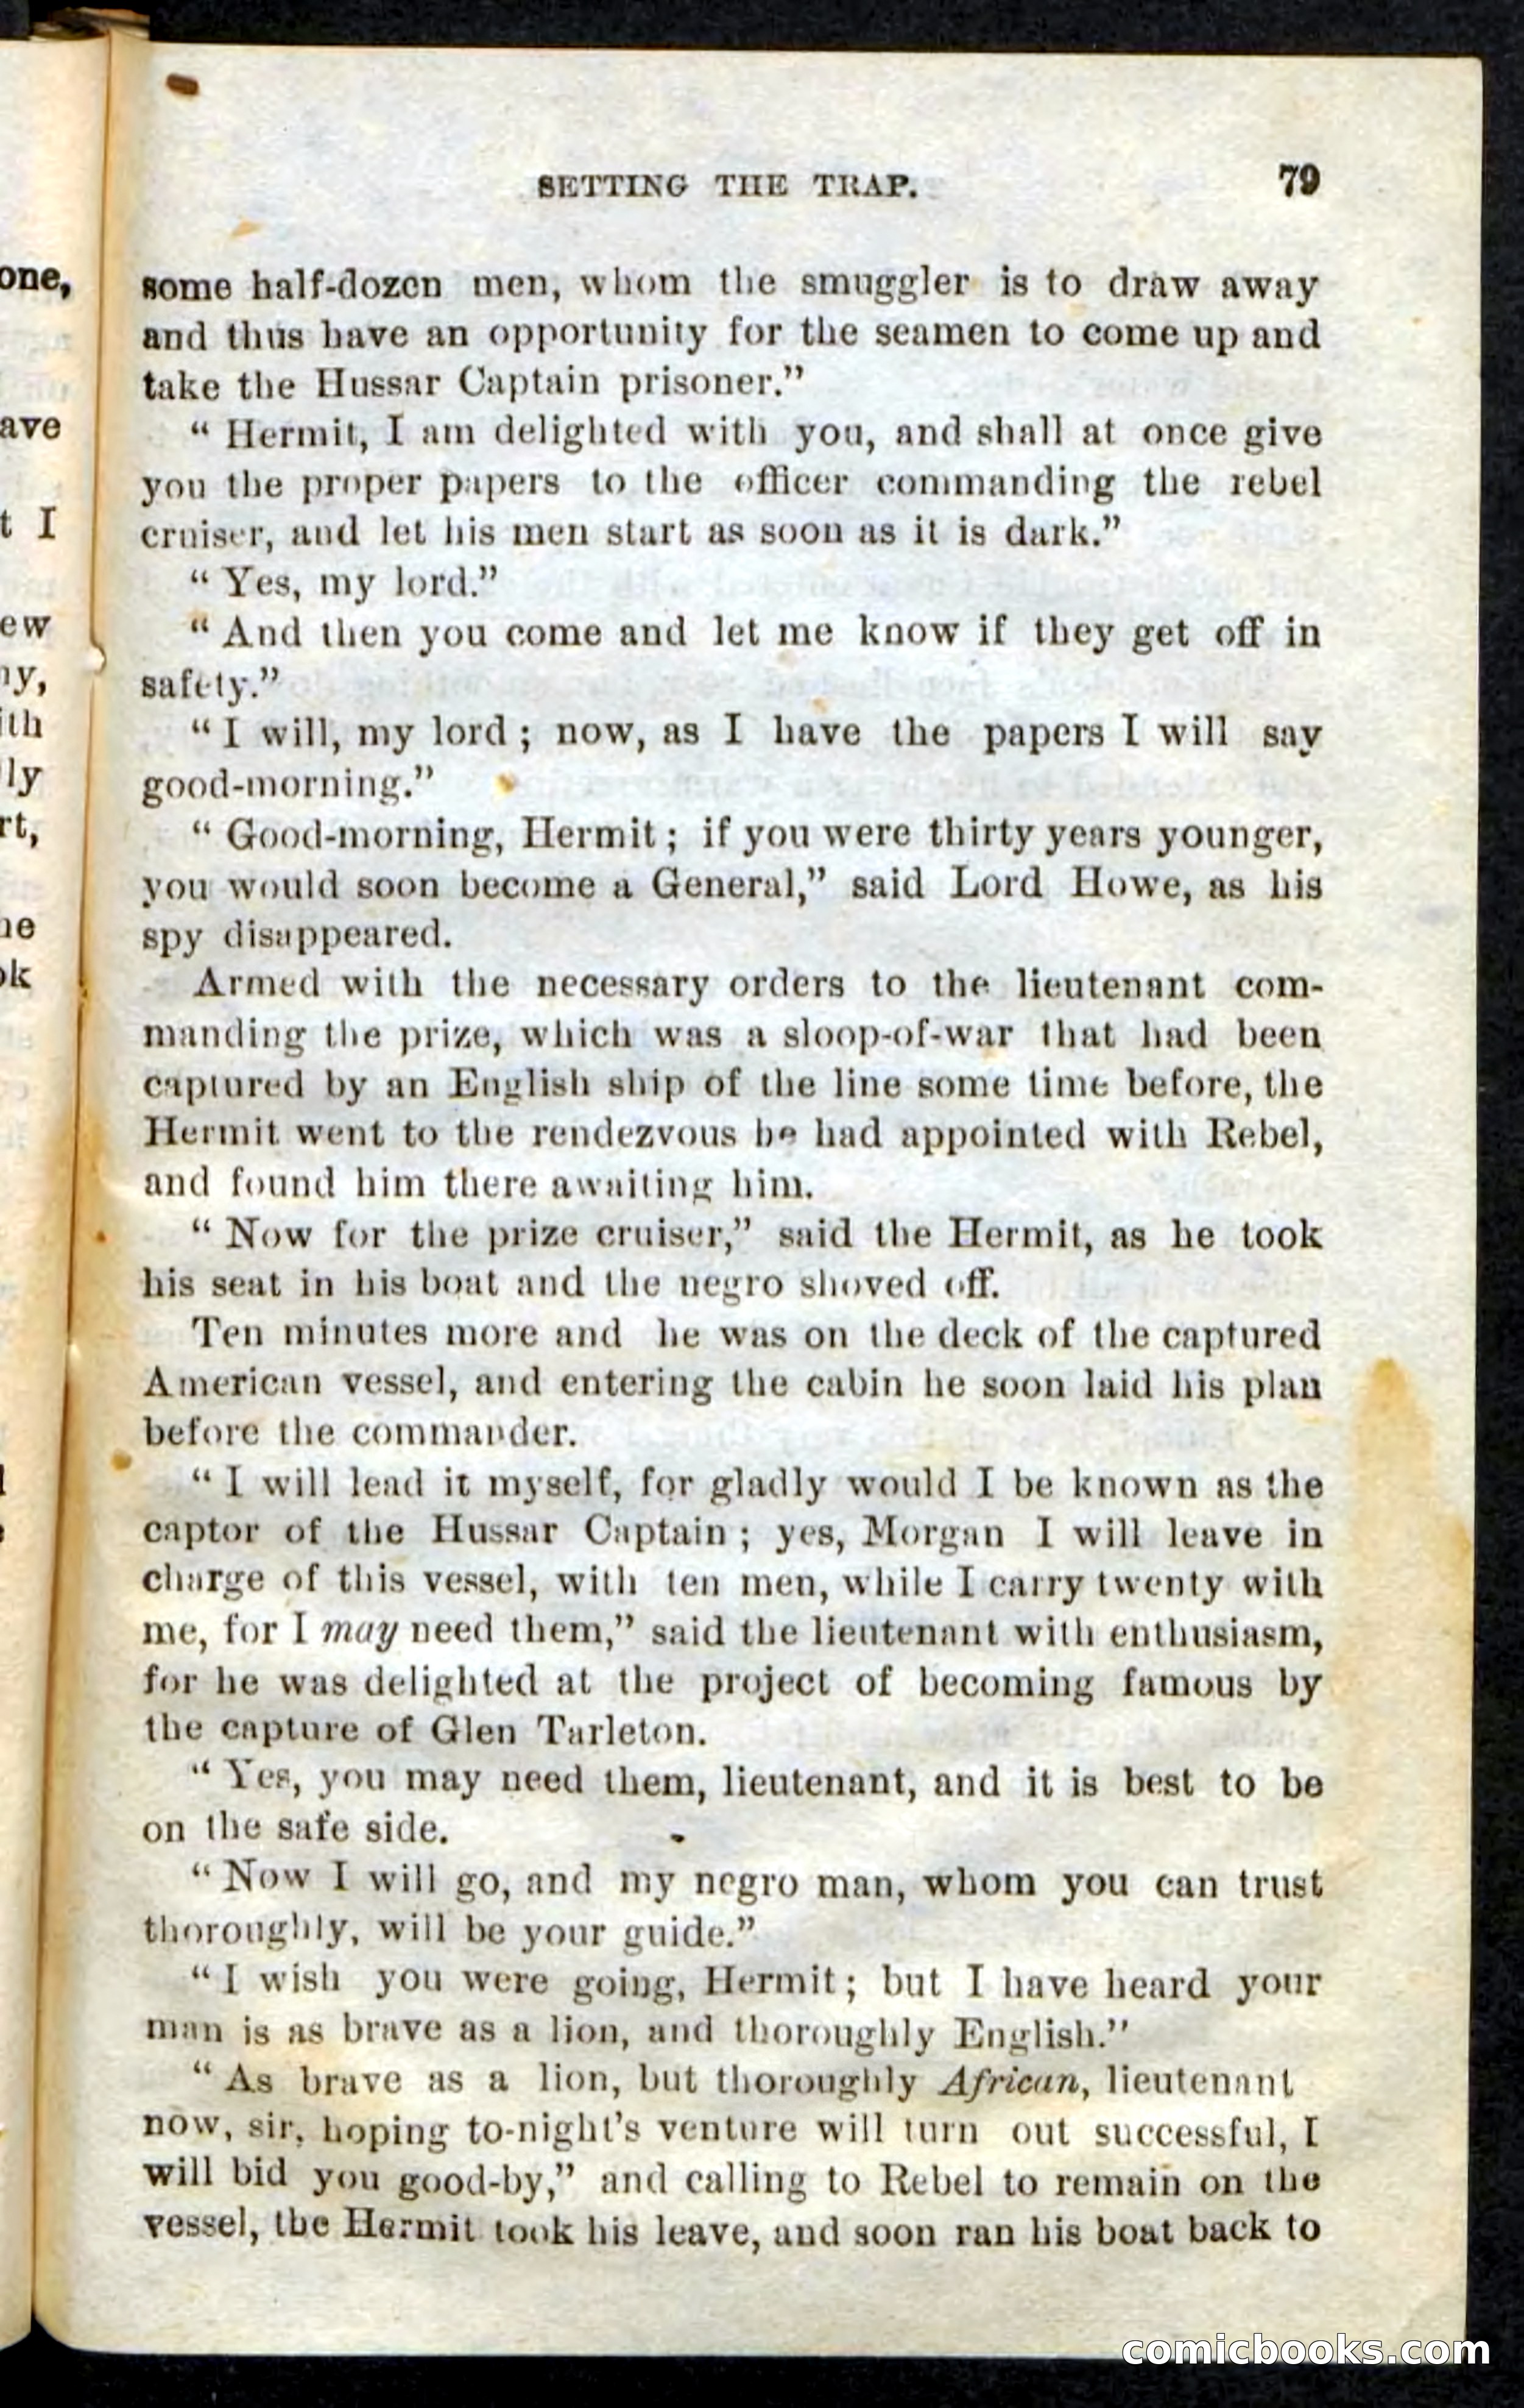 SETTING THE TRAP. 79
some half-dozen men, whom the smuggler is to draw away
and thus have an opportunity for the seamen to come up and
take the Hussar Captain prisoner.”
“ Hermit, I am delighted with you, and shall at once give
you the proper papers to the officer commanding the rebel
cruiser, and let his men start as soon as it is dark.”
“ Yes, my lord.”
“ And then you come and let me know if they get off in
safety.”
“ I will, my lord ; now, as I have the papers I will say
good-morning.”
“ Good-morning, Hermit ; if you were thirty years younger,
you would soon become a General,” said Lord Howe, as his
spy disappeared.
Armed with the necessary orders to the lieutenant com-
manding the prize, which was a sloop-of-war that had been
captured by an English ship of the line some time before, the
Hermit went to the rendezvous he had appointed with Rebel,
and found him there awaiting him.
“ Now for the prize cruiser,” said the Hermit, as he took
his seat in his boat and the negro shoved off.
Ten minutes more and he was on the deck of the captured
American vessel, and entering the cabin he soon laid his plan
before the commander.
“ I will lead it myself, for gladly would I be known as the
captor of the Hussar Captain ; yes, Morgan I will leave in
charge of this vessel, with ten men, while I carry twenty with
me, for I may need them,” said the lieutenant with enthusiasm,
for he was delighted at the project of becoming famous by
the capture of Glen Tarleton.
“ Yes, you may need them, lieutenant, and it is best to be
on the safe side.
“ Now I will go, and my negro man, whom you can trust
thoroughly, will be your guide.”
“ I wish you were going, Hermit ; but I have heard your
man is as brave as a lion, and thoroughly English.”
“ As brave as a lion, but thoroughly African, lieutenant
now, sir, hoping to-night’s venture will turn out successful, I
will bid you good-by,” and calling to Rebel to remain on the
vessel, the Hermit took his leave, and soon ran his boat back to
comicbooks.com